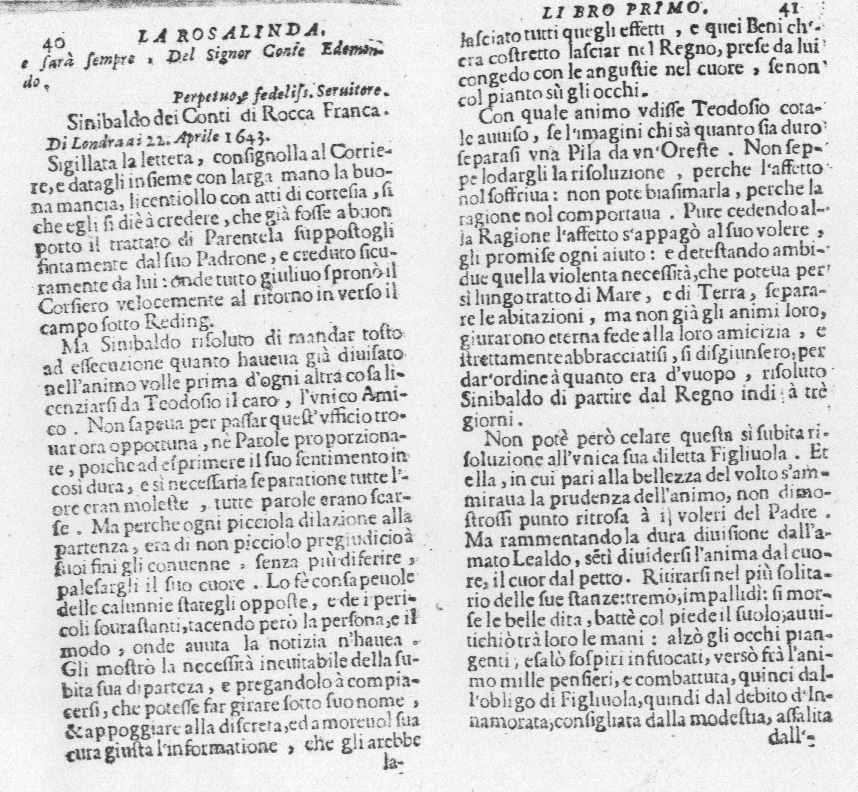 40 LA ROSALINDA.
e sarà sempre. Del Signor Conte Edemon-
do,
Perpetuo, e fedeliss. Seruitore.
Sinibaldo dei Conti di Rocca Franca.
Di Londra ai 22. Aprile 1643.
Sigillata la lettera, consignolla al Corrie-
re, e datagli insieme con larga mano la buo-
na mancia, licentiollo con atti di cortesia, sì
che egli si diè à credere, che già fosse a buon
porto il trattato di Parentela suppostogli
fintamente dal suo Padrone, e creduto sicu-
ramente da lui: onde tutto giuliuo spronò il
Corsiero velocemente al ritorno in verso il
campo sotto Reding.
Ma Sinibaldo risoluto di mandar tosto
ad essecuzione quanto haueua già diuisato
nell'animo volle prima d'ogni altra cosa li-
cenziarsi da Teodosio il caro, l'vnico Ami-
co. Non sapeua per passar quest'vfficio tro-
uar ora opportuna, nè Parole proporziona-
te, poiche ad esprimere il suo sentimento in
così dura, e sì necessaria separatione tutte l'-
ore eran moleste, tutte parole erano scar-
se. Ma perche ogni picciola dilazione alla
partenza, era di non picciolo pregiudicio à
suoi fini gli conuenne, senza più diferire,
palesargli il suo cuore. Lo fè consapeuole
delle calunnie stategli opposte, e de i peri-
coli sourastanti, tacendo però la persona, e il
modo, onde auuta la notizia n'hauea.
Gli mostrò la necessità ineuitabile della su-
bita sua parteza, e pregandolo à compia-
cersi, che potesse far girare sotto suo nome,
& appoggiare alla discreta, ed amoreuol sua
cura giusta l'informatione, che gli arebbe
la-
LIBRO PRIMO. 41
lasciato tutti quegli effetti, e quei Beni ch'-
era costretto lasciar nel Regno, prese da lui
congedo con le angustie nel cuore, se non
col pianto sù gli occhi.
Con quale animo vdisse Teodosio cota-
le auuiso, se l'imagini chi sà quanto sia duro
separasi vna Pila da vn'Oreste. Non sep-
pe lodargli la risoluzione, perche l'affetto
nol soffriua: non pote biasimarla, perche la
ragione nol comportaua. Pure cedendo al-
la Ragione l'affetto s'appagò al suo volere,
gli promise ogni aiuto: e detestando ambi-
due quella violenta necessità, che poteua per
sì lungo tratto di Mare, e di Terra, separa-
re le abitazioni, ma non già gli animi loro,
giurarono eterna fede alla loro amicizia, e
strettamente abbracciatisi, si disgiunsero, per
dar'ordine à quanto era d'vuopo, risoluto
Sinibaldo di partire dal Regno indi à trè
giorni.
Non potè però celare questa sì subita ri-
soluzione all'vnica sua diletta Figliuola. Et
ella, in cui pari alla bellezza del volto s'am-
miraua la prudenza dell'animo, non dimo-
strossi punto ritrosa à i voleri del Padre.
Ma rammentando la dura diuisione dall'a-
mato Lealdo, sētì diuidersi l'anima dal cuo-
re, il cuor dal petto. Ritirarsi nel più solita-
rio delle sue stanze: tremò; impallidì: si mor-
se le belle dita, battè col piede il suolo; auui-
tichiò trà loro le mani: alzò gli occhi pian-
genti, esalò sospiri infuocati, versò frà l'ani-
mo mille pensieri, e combattuta, quinci dal-
l'obligo di Figliuola, quindi dal debito d'In-
namorata, consigliata dalla modestia, assalita
dall'-